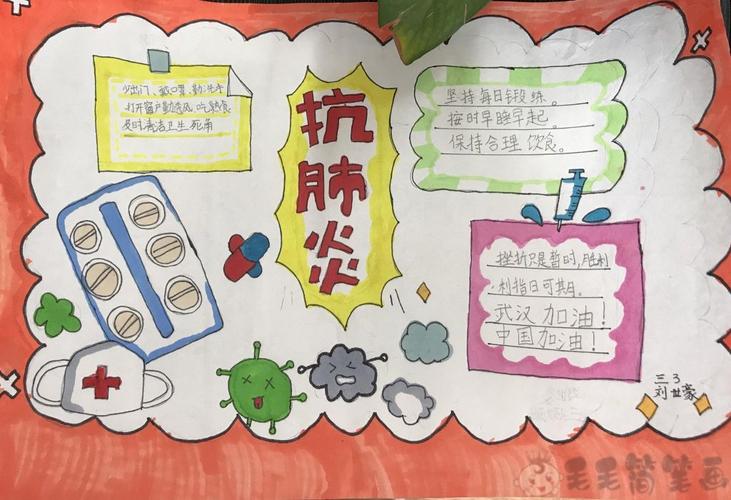 少出门、戴口罩、勤洗手
打开窗户勤透风 吃熟食
及时清洁卫生死角
抗
肺
炎
坚持每日锻炼。
按时早睡早起。
保持合理饮食。
挫折只是暂时,胜利
利指日可期。
武汉加油!
中国加油!
三3
刘世豪
毛毛简笔画